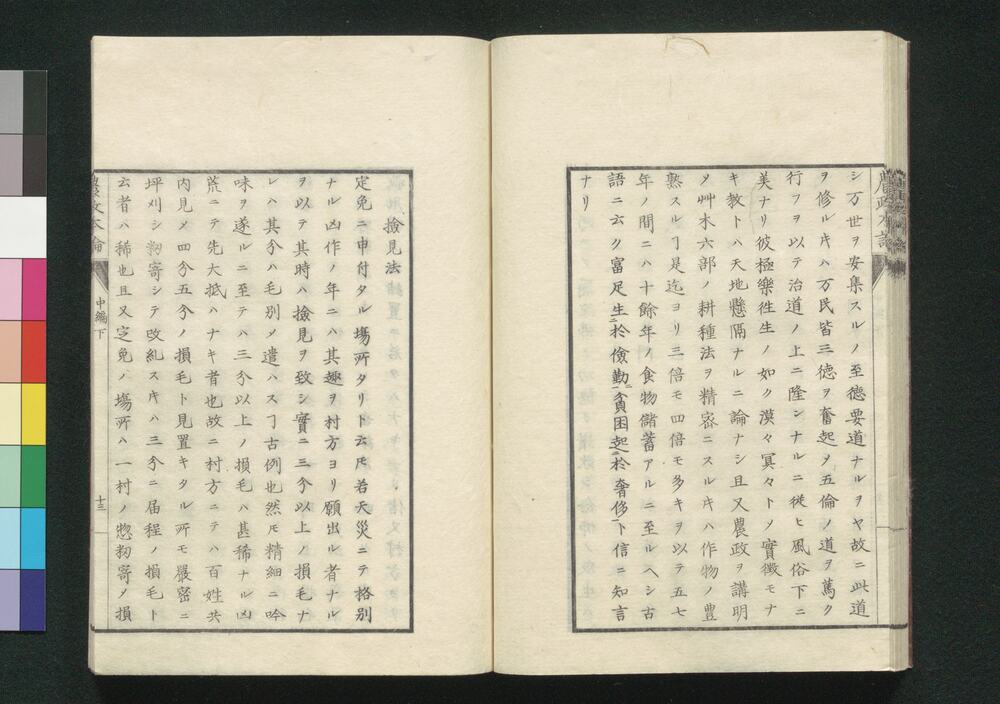 シ万世ヲ安集スルノ至德要道ナルヲヤ故ニ此道
ヲ修ルキハ万民皆三德ヲ奮起メ五倫ノ道ヲ萬ク
行フヲ以テ治道ノ上ニ隆ンナルニ從ヒ風俗下ニ
美ナリ彼極樂徃生ノ如ク漠々冥々トノ實徴モナ
キ教トハ天地懸隔ナルニ論ナシ且又農政ヲ講明
メ艸木六部ノ耕種法ヲ精密ニスルキハ作物ノ豊
熟スルヿ是迄ヨリ三倍モ四倍モ多キヲ以テ五七
年ノ間ニハ十餘年ノ食物儲蓄アルニ至ルヘシ古
語ニ云ク富足生ニ於儉勤ニ貧困起ニ於奢侈ニト信ニ知言
ナリ
農政本論
撿見法
定免ニ申付タル塲所タリト云𪜈若天災ニテ格別
ナル凶作ノ年ニハ其趣ヲ村方ヨリ願出ル者ナル
ヲ以テ其時ハ撿見ヲ致シ實ニ三分以上ノ損毛ナ
レハ其分ハ毛別メ遣ハスヿ古例也然𪜈精細ニ吟
味ヲ遂ルニ至テハ三分以上ノ損毛ハ甚稀ナル凶
荒ニテ先大抵ハナキ者也故ニ村方ニテハ百姓共
内見メ四分五分ノ損毛ト見置キタル所モ嚴密ニ
坪刈シ籾寄シテ改糺スキハ三分ニ届程ノ損毛ト
云者ハ稀也且又定免ノ塲所ハ一村ノ惣籾寄メ損
農政本論
中編下
十三